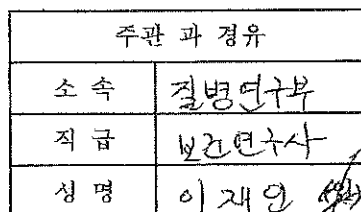 주관 과 경유
소 속 질병연구부
직 급 보건연구사
성 명 이재인